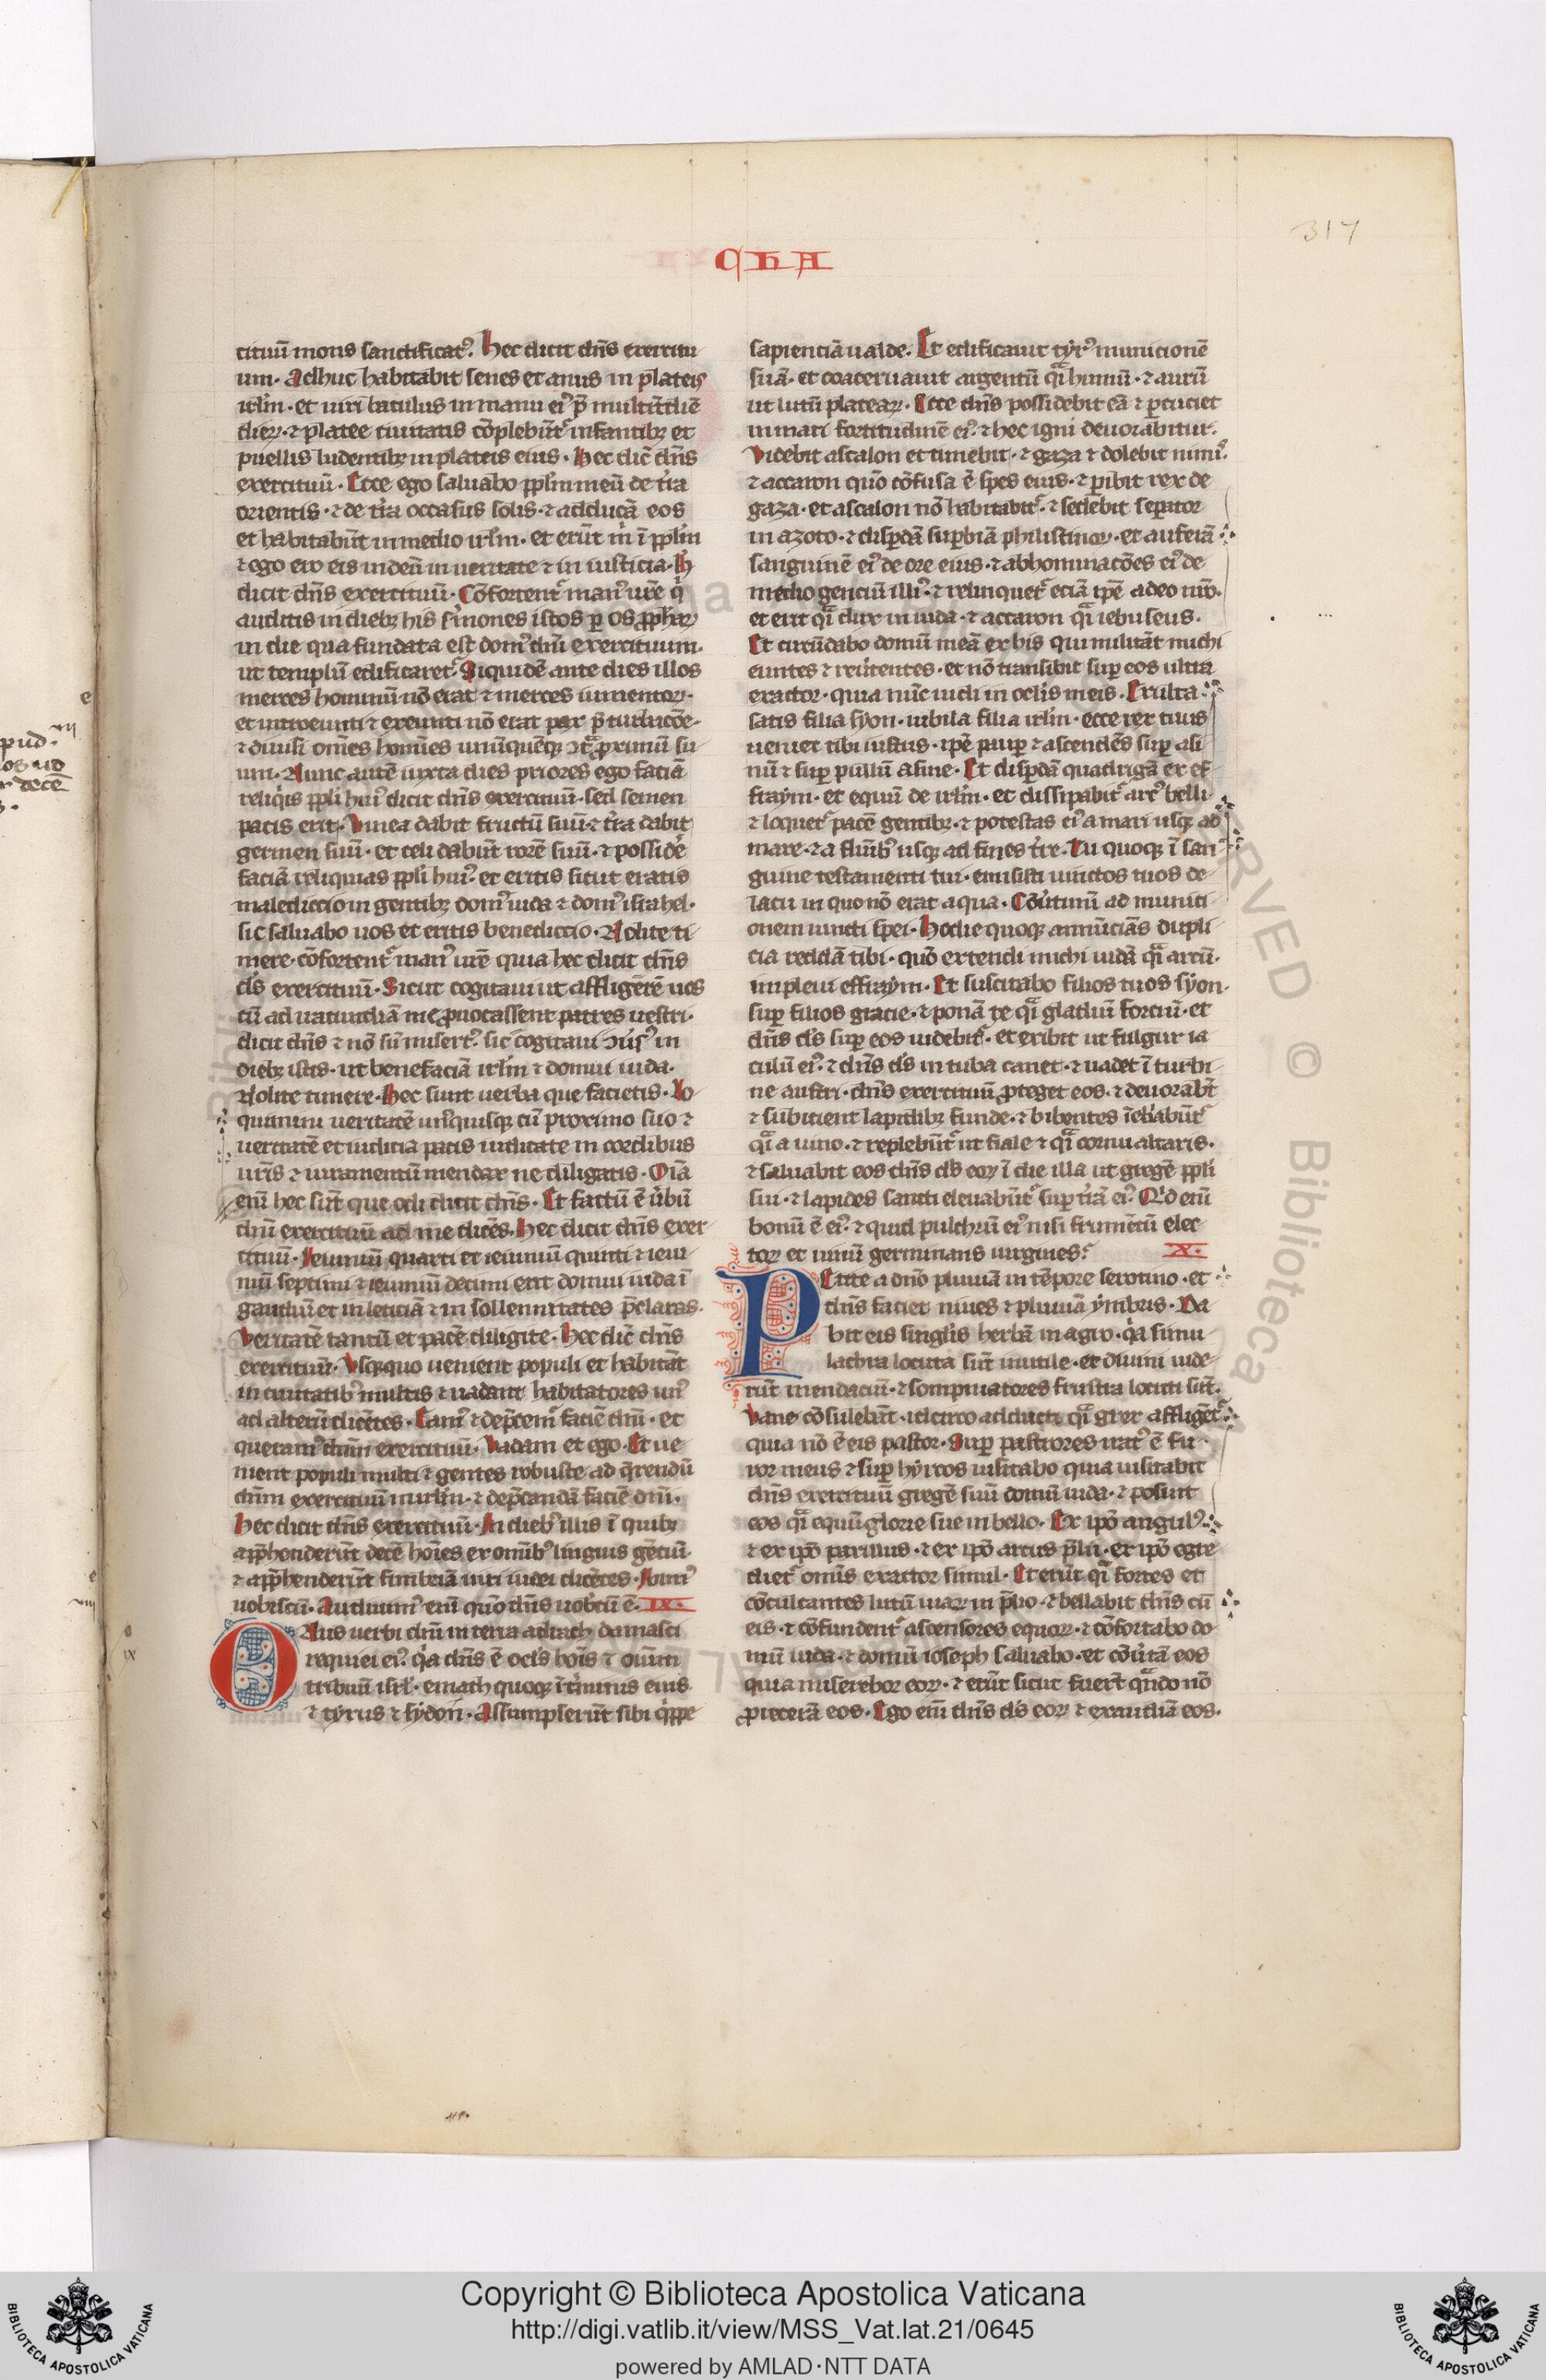 CHA
317
cituū mons sanctificatꝰ. Hec dicit dn̄s exercitu
um. Adhuc habitabūt senes et anus in plateis
irl̄m. et uiri baculus in manu eiꝰ p̄ multitudīe
dieꝝ. ⁊ platee ciuitatis cōplebūt᷑ infantibꝫ et
puellis ludentibꝫ in plateis eius. Hec dic̄ dn̄s
exercituū. Ecce ego saluabo ppl̄m meū de t̄ra
orientis. ⁊ de t̄ra occasus solis. ⁊ adducā eos
et habitabūt in medio irl̄m. et erūt m̄ ī ppl̄m
⁊ ego ero eis in deū in ueritate ⁊ in iusticia. H̄
dicit dn̄s exercituū. Cōfortent᷑ manꝰ ur̄e qͥ
auditis in diebꝫ his s̄mones istos ꝑ os ꝓphaꝝ
in die qua fundata est domꝰ dn̄i exercituum.
ut templū edificaret᷑. Siquidē ante dies illos
merces hominū nō erat ⁊ merces iumentoꝝ.
et introeunti ⁊ exeunti nō erat pax p̄ tribulacōe.
⁊ dimisi om̄es homīes unūquēqꝫ ꝯtͣ ꝓximū su
um. Nunc autē iuxta dies priores ego faciā
reliqͥis ppl̄i huiꝰ dicit dn̄s exercituū. sed semen
pacis erit. Vinea dabit fructū suū ⁊ t̄ra dabit
germen suū. et celi dabūt rorē suū. ⁊ possidē
faciā reliquias ppl̄i huiꝰ. et eritis sicut eratis
malediccio in gentibꝫ domꝰ iuda ⁊ domꝰ israhel.
sic saluabo uos et eritis benediccio. Nolite ti
mere. cōfortent᷑ manꝰ ur̄e quia hec dicit dn̄s
ds̄ exercituū. Sicut cogitaui ut affligerē uos
cū ad iracundiā me ꝓuocassent patres uestri.
dicit dn̄s ⁊ nō sū misertꝰ. sic cogitaui ꝯūsꝰ in
diebꝫ istis. ut benefaciā irl̄m ⁊ domui iuda.
Nolite timere. Hec sunt uerba que facietis. Lo
quimini ueritatē unꝰquisqꝫ cū proximo suo ⁊
ueritatē et iudicia pacis iudicate in cordibus
ur̄is ⁊ iuramentū mendax ne diligatis. Oīa
enī hec sūt que odi dicit dn̄s. Et factū ē ūbū
dn̄i exercituū ad me dicēs. Hec dicit dn̄s exer
cituū. Ieiuniū quarti et ieiuniū quinti ⁊ ieiu
niū septimi ⁊ ieiuniū decimi erit domui iuda ī
gaudiū et in leticiā ⁊ in sollennitates p̄claras.
Veritatē tantū et pacē diligite. Hec dic̄ dn̄s
exercituū. Vsqꝫquo uenient populi et habitāt
in ciuitatibꝰ multis ⁊ uadant habitatores unꝰ
ad alterū dicētes. Eamꝰ ⁊ dep̄cemꝰ faciē dn̄i. et
queramꝰ dn̄m exercituū. Vadam et ego. Et ue
nient populi multi ⁊ gentes robuste ad q̄rendū
dn̄m exercituū in irl̄m. ⁊ dep̄candā faciē dn̄i.
Hec dicit dn̄s exercituū. In diebꝰ illis ī quibꝫ
app̄henderūt decē hoīes ex omībꝰ linguis gēciū.
⁊ app̄henderūt fimbriā uiri iudei dicētes. Ibimꝰ
uobiscū. Audiuimꝰ enī quō dn̄s uobcū ē. IX.
ONus uerbi dn̄i in terra adrach damasci
requiei eiꝰ. qͥa dn̄s ē ocl̄s hoīs ⁊ oīum
tribuū isrl̄. emach quoqꝫ ī t̄minis eius
⁊ tyrus ⁊ sydon. Assumpserūt sibi qͥppe
sapienciā ualde. Et edificauit tyrꝰ municionē
suā. et coaceruauit argentū qͣi humū. ⁊ aurū
ut lutū plateaꝝ. Ecce dn̄s possidebit eā ⁊ ꝑcuciet
in mari fortitudinē eiꝰ. ⁊ hec igni deuorabitur.
Videbit ascalon et timebit. ⁊ gaza ⁊ dolebit nimiꝰ.
⁊ accaron quō cōfusa ē spes eius. ⁊ ꝑibit rex de
gaza. et ascalon nō habitabit᷑. ⁊ sedebit seꝑator
in azoto. ⁊ disꝑdā suꝑbiā philistinoꝝ. et auferā
sanguinē eiꝰ de ore eius. ⁊ abhominacōes eiꝰ de
medio genciū illiꝰ. ⁊ relinquet᷑ eciā ip̄e adeo nr̄o.
et erit qͣi dux in iuda. ⁊ accaron qͣi iebuseus.
Et circūdabo domū meā ex his qui militāt michi
euntes ⁊ reūtentes. et nō transibit suꝑ eos ultra
exactor. quia nūc uidi in ocl̄is meis. Exulta
satis filia syon. iubila filia irl̄m. ecce rex tuus
ueniet tibi iustus. ip̄e pauꝑ ⁊ ascendēs suꝑ asi
nū ⁊ suꝑ pullū asine. Et disꝑdā quadrigā ex ef
fraym. et equū de irl̄m. et dissipabit᷑ arcꝰ belli.
⁊ loquet᷑ pacē gentibꝫ. ⁊ potestas eiꝰ a mari usqꝫ ad
mare. ⁊ a flumībꝰ usqꝫ ad fines t̄re. Tu quoqꝫ ī san
guine testamenti tui. emisisti uinctos tuos de
lacu in quo nō erat aqua. Cōūtimī ad munici
onem uincti spei. Hodie quoqꝫ annūciās dupli
cia reddā tibi. quō extendi michi iudā qͣi arcū.
impleui effraym. Et suscitabo filios tuos syon.
suꝑ filios grecie. ⁊ ponā te qͣi gladiū forciū. et
dn̄s ds̄ suꝑ eos uidebit᷑. et exibit ut fulgur ia
culū eiꝰ. ⁊ dn̄s ds̄ in tuba canet. ⁊ uadet ī turbi
ne austri. dn̄s exercituū ꝓteget eos. ⁊ deuorabūt
⁊ subicient lapidibꝫ funde. ⁊ bibentes īebͥabūt᷑
qͣi a uino. ⁊ replebūt᷑ ut fiale ⁊ qͣi cornu altaris.
⁊ saluabit eos dn̄s ds̄ eoꝝ ī die illa ut gregē ppl̄i
sui. ⁊ lapides sancti eleuabūt᷑ suꝑ t̄rā eiꝰ. Qͥd enī
bonū ē eiꝰ. ⁊ quid pulchrū eiꝰ nisi frumētū elec
toꝝ et uinū germinans uirgines. X.
PEtite a dn̄o pluuiā in tēpore serotino. et
dn̄s faciet niues ⁊ pluuiā ymbris. Da
bit eis singl̄is herbā in agro. qͥa simu
lachra locuta sūt inutile. et diuini uide
rūt mendaciū. ⁊ sompniatores frustra locuti sūt.
Vane cōsulebāt. idcirco adducti qͣi grex affligēt᷑
quia nō ē eis pastor. Suꝑ pastores iratꝰ ē fu
ror meus ⁊ suꝑ hyrcos uisitabo quia uisitabit
dn̄s exercituū gregē suū domū iuda. ⁊ posuit
eos qͣi equū glorie sue in bello. Ex ip̄o angulꝰ.
⁊ ex ip̄o paxillus. ⁊ ex ip̄o arcus p̄lii. ex ip̄o egre
diet᷑ omīs exactor simul. Et erūt qͣi fortes et
cōculcantes lutū uiaꝝ in p̄lio. ⁊ bellabūt dn̄s cū
eis. ⁊ cōfundent᷑ ascensores equoꝝ. ⁊ cōfortabo do
mū iuda. ⁊ domū ioseph saluabo. et cōūtā eos
quia miserebor eoꝝ. ⁊ erūt sicut fuerūt qͣndo nō
ꝓiecerā eos. Ego enī dn̄s ds̄ eoꝝ ⁊ exaudiā eos.
Copyright © Biblioteca Apostolica Vaticana
http://digi.vatlib.it/view/MSS_Vat.lat.21/0645
powered by AMLAD·NTT DATA
BIBLIOTECA APOSTOLICA VATICANA
BIBLIOTECA APOSTOLICA VATICANA